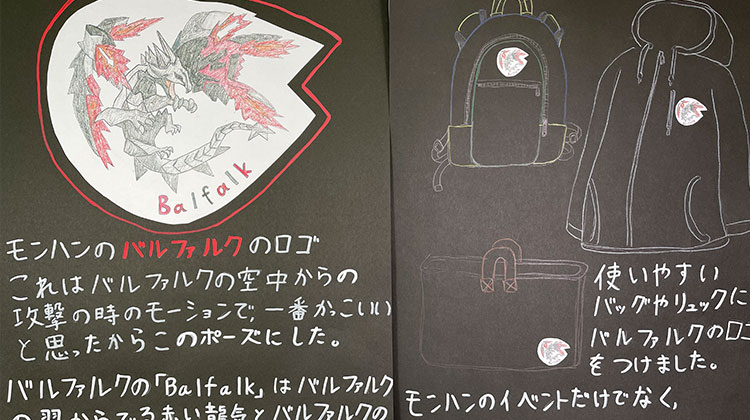 Balfalk
モンハンのバルファルクのロゴ
これはバルファルクの空中からの
攻撃の時のモーションで、一番かっこいい
と思ったからこのポーズにした。
バルファルクの「Balfalk」はバルファルク
の翼からでる赤い龍気とバルファルクの
使いやすい
バッグやリュックに
バルファルクのロゴ
をつけました。
モンハンのイベントだけでなく、